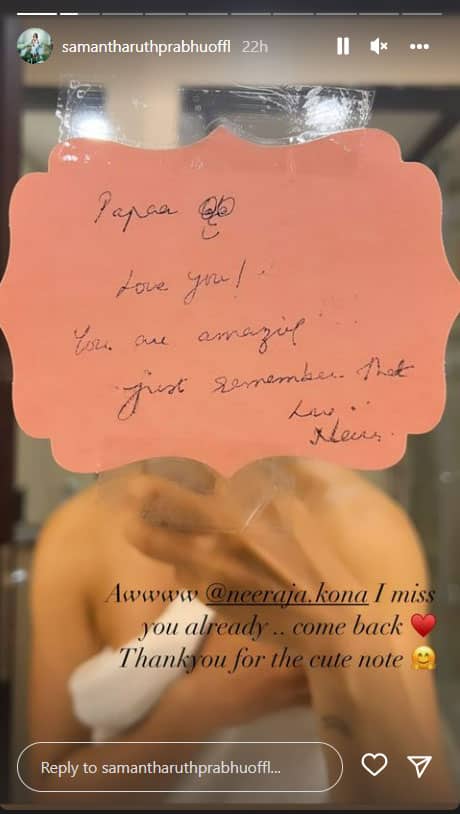 samantharuthprabhuoffl 22h
Papaa
Love you!
You are amazing
just remember that
Awwww @neeraja.kona I miss
you already .. come back ♥️
Thankyou for the cute note 🤗
Reply to samantharuthprabhuoffl...